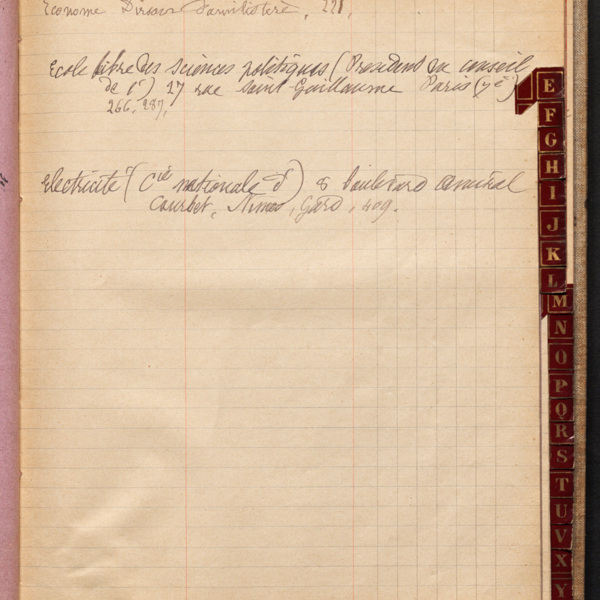 Econome Divers Familistère, 221,
Ecole libre des Sciences politiques (Président du conseil
de l') 27 rue Saint-Guillaume Paris (7e)
266, 287,
Electricité (Cie nationale d') 8 boulevard Amiral
Courbet, Nimes, Gard, 409.
E
F
G
H
I
J
K
L
M
N
O
P
Q
R
S
T
U
V
X
Y